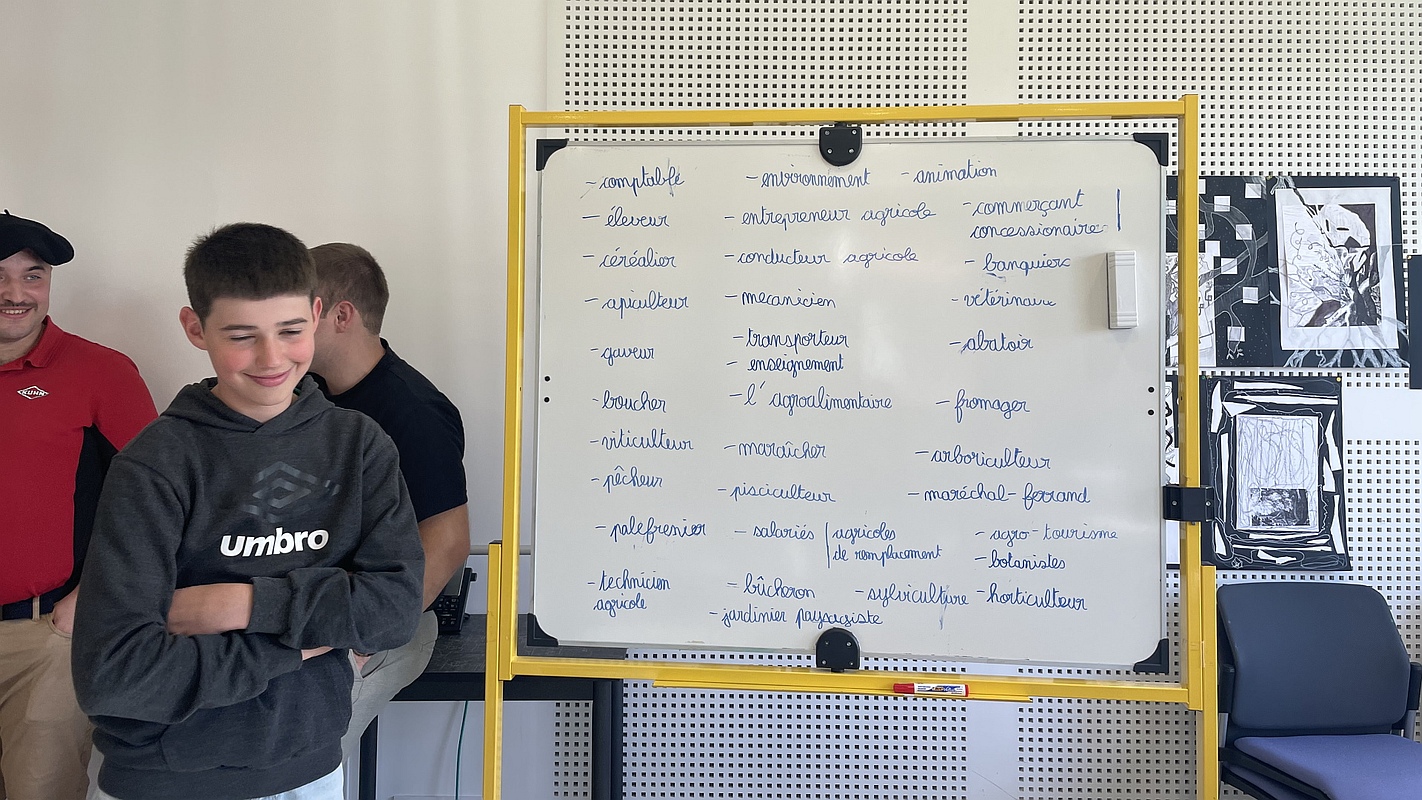 - comptable
- environnement
- animation
- éleveur
- entrepreneur agricole
- commerçant
concessionaire
- céréalier
- conducteur agricole
- banquiere
- apiculteur
- mecanicien
- vétérinaire
- gaveur
- transporteur
- enseignement
- abatoir
- boucher
- l'agroalimentaire
- fromager
- viticulteur
- maraîcher
- arboriculteur
- pêcheur
- pisciculteur
- maréchal-ferrand
- palefrenier
- salariés
agricoles
de remplacement
- agro-tourisme
- botanistes
- technicien
agricole
- bûcheron
- sylviculture
- horticulteur
- jardinier paysagiste
KUHN
umbro